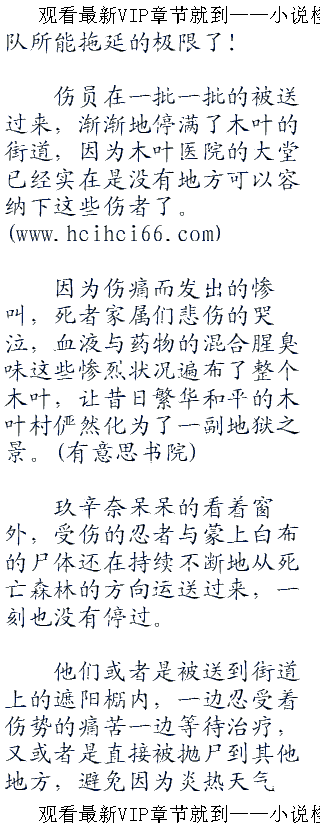 观看最新VIP章节就到——小说检
队所能拖延的极限了！
伤员在一批一批的被送
过来，渐渐地停满了木叶的
街道，因为木叶医院的大堂
已经实在是没有地方可以容
纳下这些伤者了。
(www.hcihci66.com)
因为伤痛而发出的惨
叫，死者家属们悲伤的哭
泣，血液与药物的混合腥臭
味这些惨烈状况遍布了整个
木叶，让昔日繁华和平的木
叶村俨然化为了一副地狱之
景。(有意思书院)
玖辛奈呆呆的看着窗
外，受伤的忍者与蒙上白布
的尸体还在持续不断地从死
亡森林的方向运送过来，一
刻也没有停过。
他们或者是被送到街道
上的遮阳棚内，一边忍受着
伤势的痛苦一边等待治疗，
又或者是直接被抛尸到其他
地方，避免因为炎热天气
观看最新VIP章节就到——小说检